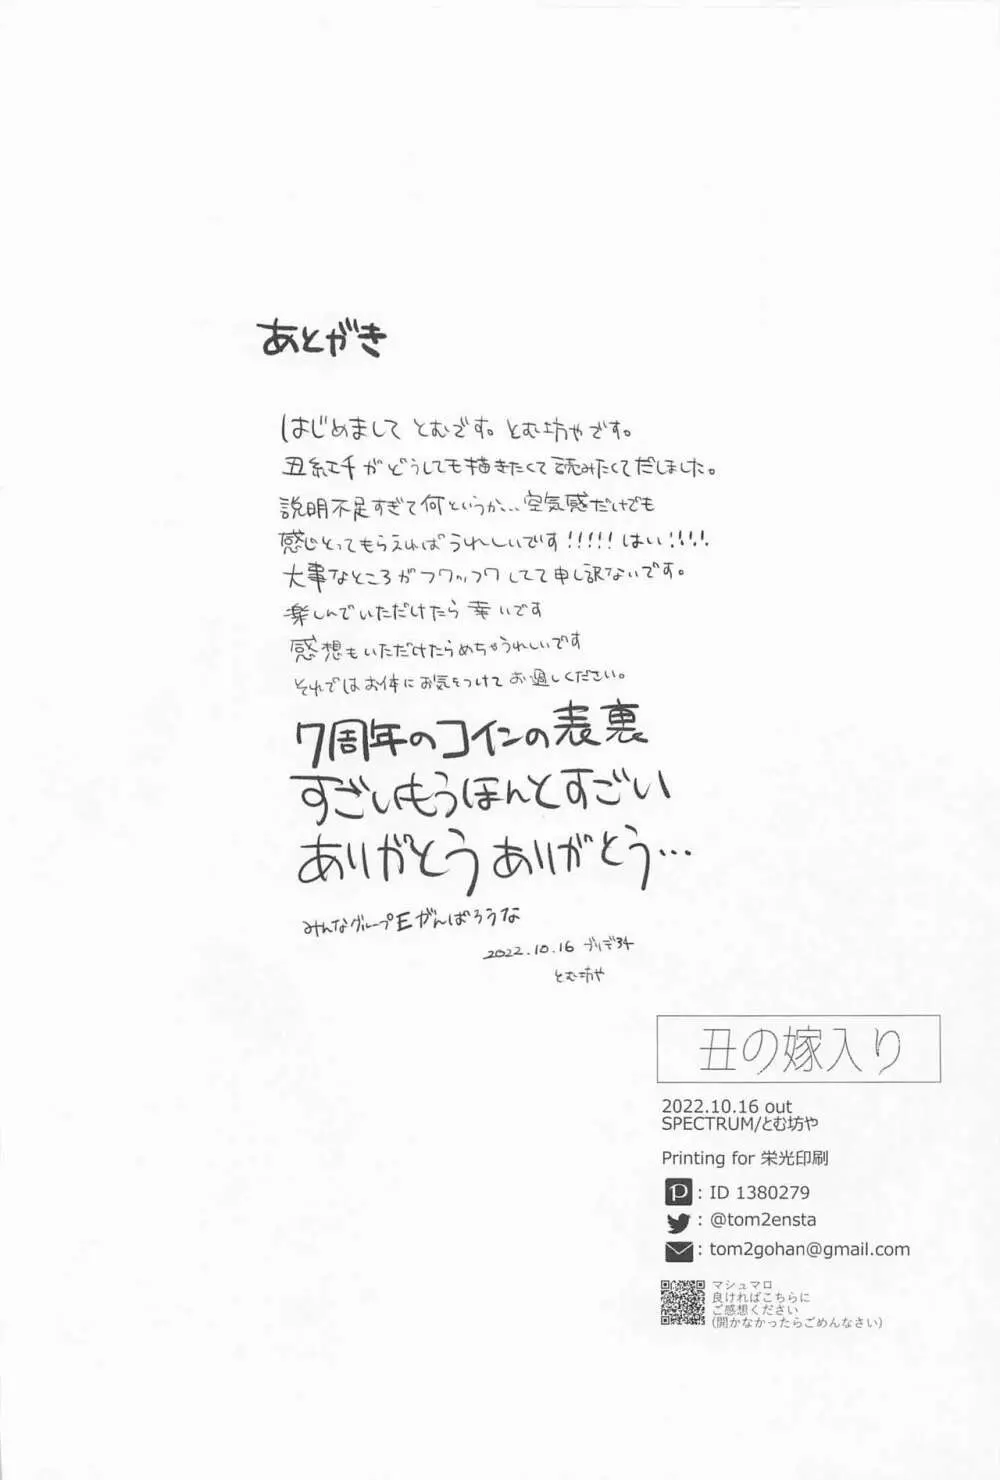 あとがき
はじめまして とむです。とむ坊やです。
丑紅千がどうしても描きたくて読みたくてだしました。
説明不足すぎて何というか…空気感だけでも
感じとってもらえればうれしいです!!!!! はい!!!!
大事なところがフワッフワしてて申し訳ないです。
楽しんでいただけたら幸いです
感想もいただけたらめちゃうれしいです
それではお体にお気をつけてお過しください。
7周年のコインの表裏
すごいもうほんとすごい
ありがとうありがとう…
みんなグループEがんばろうな
2022.10.16 ブリデ34
とむ坊や
丑の嫁入り
2022.10.16 out
SPECTRUM/とむ坊や
Printing for 栄光印刷
: ID 1380279
: @tom2ensta
: tom2gohan@gmail.com
マシュマロ
良ければこちらに
ご感想ください
(開かなかったらごめんなさい)